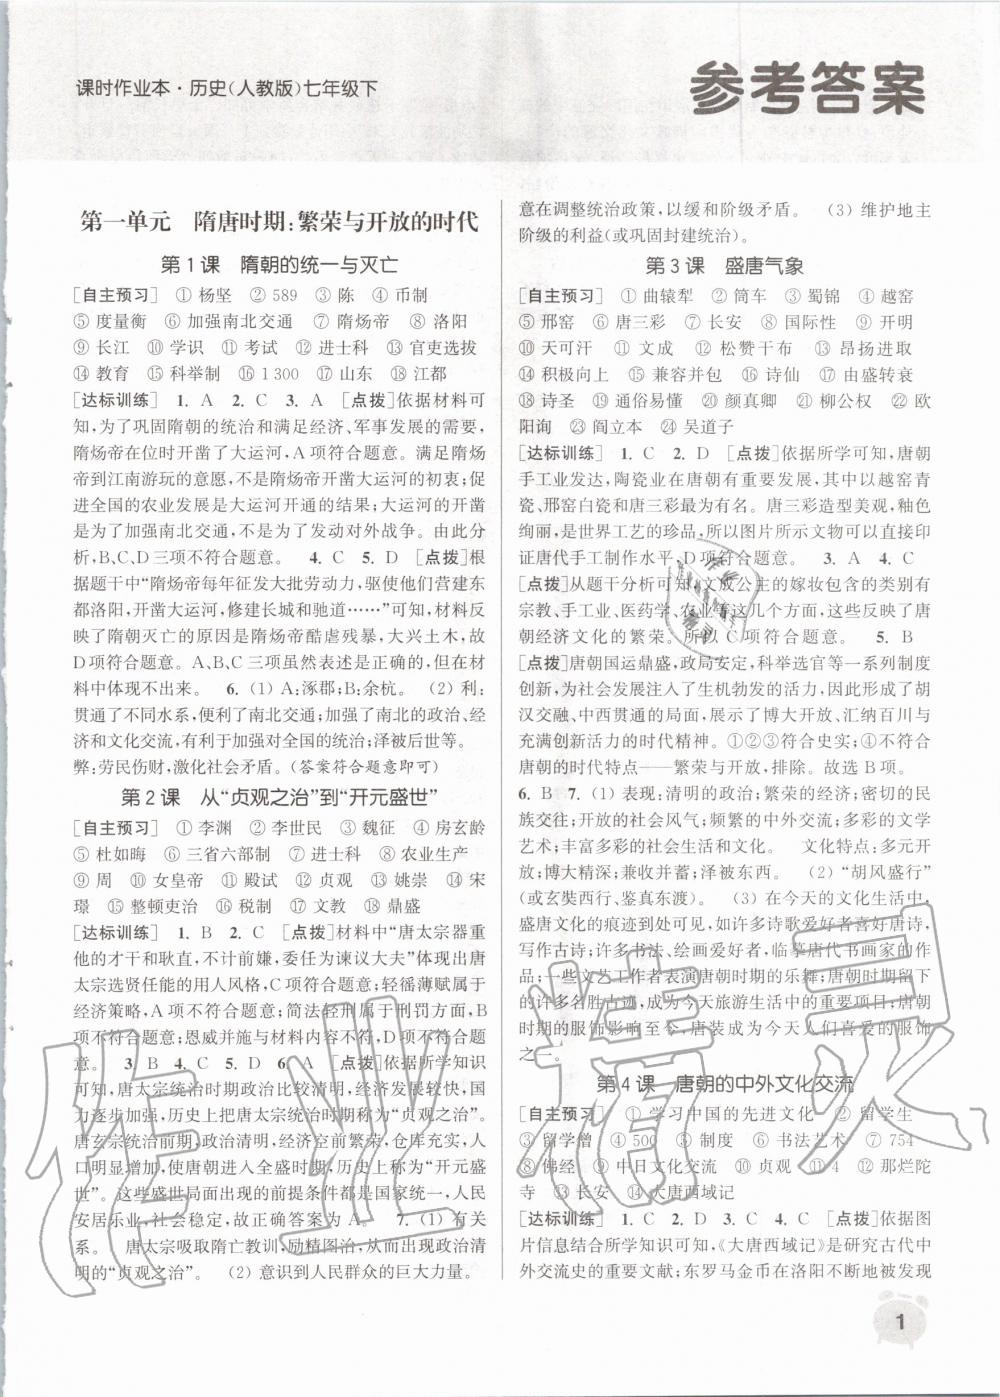 课时作业本·历史(人教版)七年级下
参考答案
第一单元　隋唐时期:繁荣与开放的时代
第1课　隋朝的统一与灭亡
[自主预习]　①杨坚　②589　③陈　④币制
⑤度量衡　⑥加强南北交通　⑦隋炀帝　⑧洛阳
⑨长江　⑩学识　⑪考试　⑫进士科　⑬官吏选拔
⑭教育　⑮科举制　⑯1 300　⑰山东　⑱江都
[达标训练]　1. A　2. C　3. A　[点拨]依据材料可
知,为了巩固隋朝的统治和满足经济、军事发展的需要,
隋炀帝在位时开凿了大运河,A项符合题意。满足隋炀
帝到江南游玩的意愿,不是隋朝开凿大运河的初衷;促
进全国的农业发展是大运河开通的结果;大运河的开凿
是为了加强南北交通,不是为了发动对外战争。由此分
析,B、C、D三项不符合题意。　4. C　5. D　[点拨]根
据题干中“隋炀帝每年征发大批劳动力,驱使他们营建东
都洛阳,开凿大运河,修建长城和驰道……”可知,材料反
映了隋朝灭亡的原因是隋炀帝酷虐残暴,大兴土木,故
D项符合题意。A、B、C三项虽然表述是正确的,但在材
料中体现不出来。　6. (1) A:涿郡;B:余杭。　(2) 利:
贯通了不同水系,便利了南北交通;加强了南北的政治、经
济和文化交流,有利于加强对全国的统治;泽被后世等。
弊:劳民伤财,激化社会矛盾。(答案符合题意即可)
第2课　从“贞观之治”到“开元盛世”
[自主预习]　①李渊　②李世民　③魏征　④房玄龄
⑤杜如晦　⑥三省六部制　⑦进士科　⑧农业生产
⑨周　⑩女皇帝　⑪殿试　⑫贞观　⑬姚崇　⑭宋
璟　⑮整顿吏治　⑯税制　⑰文教　⑱鼎盛
[达标训练]　1. B　2. C　[点拨]材料中“唐太宗器重
他的才干和耿直,不计前嫌,委任为谏议大夫”体现出唐
太宗选贤任能的用人风格,C项符合题意;轻徭薄赋属于
经济策略,A项不符合题意;简法轻刑属于刑罚方面,B
项不符合题意;恩威并施与材料内容不符,D项不符合题
意。　3. B　4. C　5. D　6. A　[点拨]依据所学知识
可知,唐太宗统治时期政治比较清明,经济发展较快,国
力逐步加强,历史上把唐太宗统治时期称为“贞观之治”。
唐玄宗统治前期,政治清明,经济空前繁荣,仓库充实,人
口明显增加,使唐朝进入全盛时期,历史上称为“开元盛
世”。这些盛世局面出现的前提条件都是国家统一,人民
安居乐业,社会稳定,故正确答案为A。　7. (1) 有关
系。　唐太宗吸取隋亡教训,励精图治,从而出现了唐初
的“贞观之治”。　(2) 意识到人民群众的巨大力量。
意在调整统治政策,以缓和阶级矛盾。　(3) 维护地主
阶级的利益(或巩固封建统治)。
第3课　盛唐气象
[自主预习]　①曲辕犁　②筒车　③蜀锦　④越窑
⑤邢窑　⑥唐三彩　⑦长安　⑧国际性　⑨开明
⑩天可汗　⑪文成　⑫松赞干布　⑬昂扬进取
⑭积极向上　⑮兼容并包　⑯诗仙　⑰由盛转衰
⑱诗圣　⑲通俗易懂　⑳颜真卿　㉑柳公权　㉒欧
阳询　㉓阎立本　㉔吴道子
[达标训练]　1. C　2. D　[点拨]依据所学可知,唐朝
手工业发达,陶瓷业在唐朝有重要发展,其中以越窑青
瓷、邢窑白瓷和唐三彩最为有名。唐三彩造型美观,釉色
绚丽,是世界工艺的珍品,所以图片所示文物可以直接印
证唐代手工制作水平,D项符合题意。　3. A　4. C
[点拨]从题干分析可知,文成公主的嫁妆包含的类别有
宗教、手工业、医药学、农业等这几个方面,这些反映了唐
朝经济文化的繁荣。所以C项符合题意。　5. B
[点拨]唐朝国运鼎盛,政局安定,科举选官等一系列制度
创新,为社会发展注入了生机勃发的活力,因此形成了胡
汉交融、中西贯通的局面,展示了博大开放、汇纳百川与
充满创新活力的时代精神。①②③符合史实;④不符合
唐朝的时代特点——繁荣与开放,排除。故选B项。
6. B　7. (1) 表现:清明的政治;繁荣的经济;密切的民
族交往;开放的社会风气;频繁的中外交流;多彩的文学
艺术;丰富多彩的社会生活和文化。　文化特点:多元开
放;博大精深;兼收并蓄;泽被东西。　(2) “胡风盛行”
(或玄奘西行、鉴真东渡)。　(3) 在今天的文化生活中,
盛唐文化的痕迹到处可见,如许多诗歌爱好者喜好唐诗,
写作古诗;许多书法、绘画爱好者,临摹唐代书画家的作
品;一些文艺工作者表演唐朝时期的乐舞;唐朝时期留下
的许多名胜古迹,成为今天旅游生活中的重要项目;唐朝
时期的服饰影响至今,唐装成为今天人们喜爱的服饰
之一。
第4课　唐朝的中外文化交流
[自主预习]　①学习中国的先进文化　②留学生
③留学僧　④500　⑤制度　⑥书法艺术　⑦754
⑧佛经　⑨中日文化交流　⑩贞观　⑪4　⑫那烂陀
寺　⑬长安　⑭大唐西域记
[达标训练]　1. C　2. D　3. C　4. C　[点拨]依据图
片信息结合所学知识可知,《大唐西域记》是研究古代中
外交流史的重要文献;东罗马金币在洛阳不断地被发现
1
作业精灵